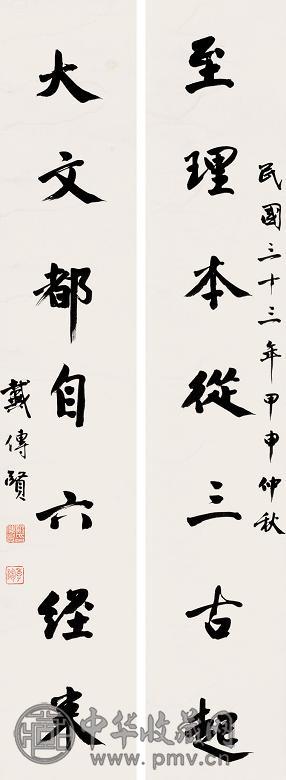 民國三十三年甲申仲秋
至理本從三古起
大文都自六經來
戴傳賢
中华收藏网
www.pmv.cn